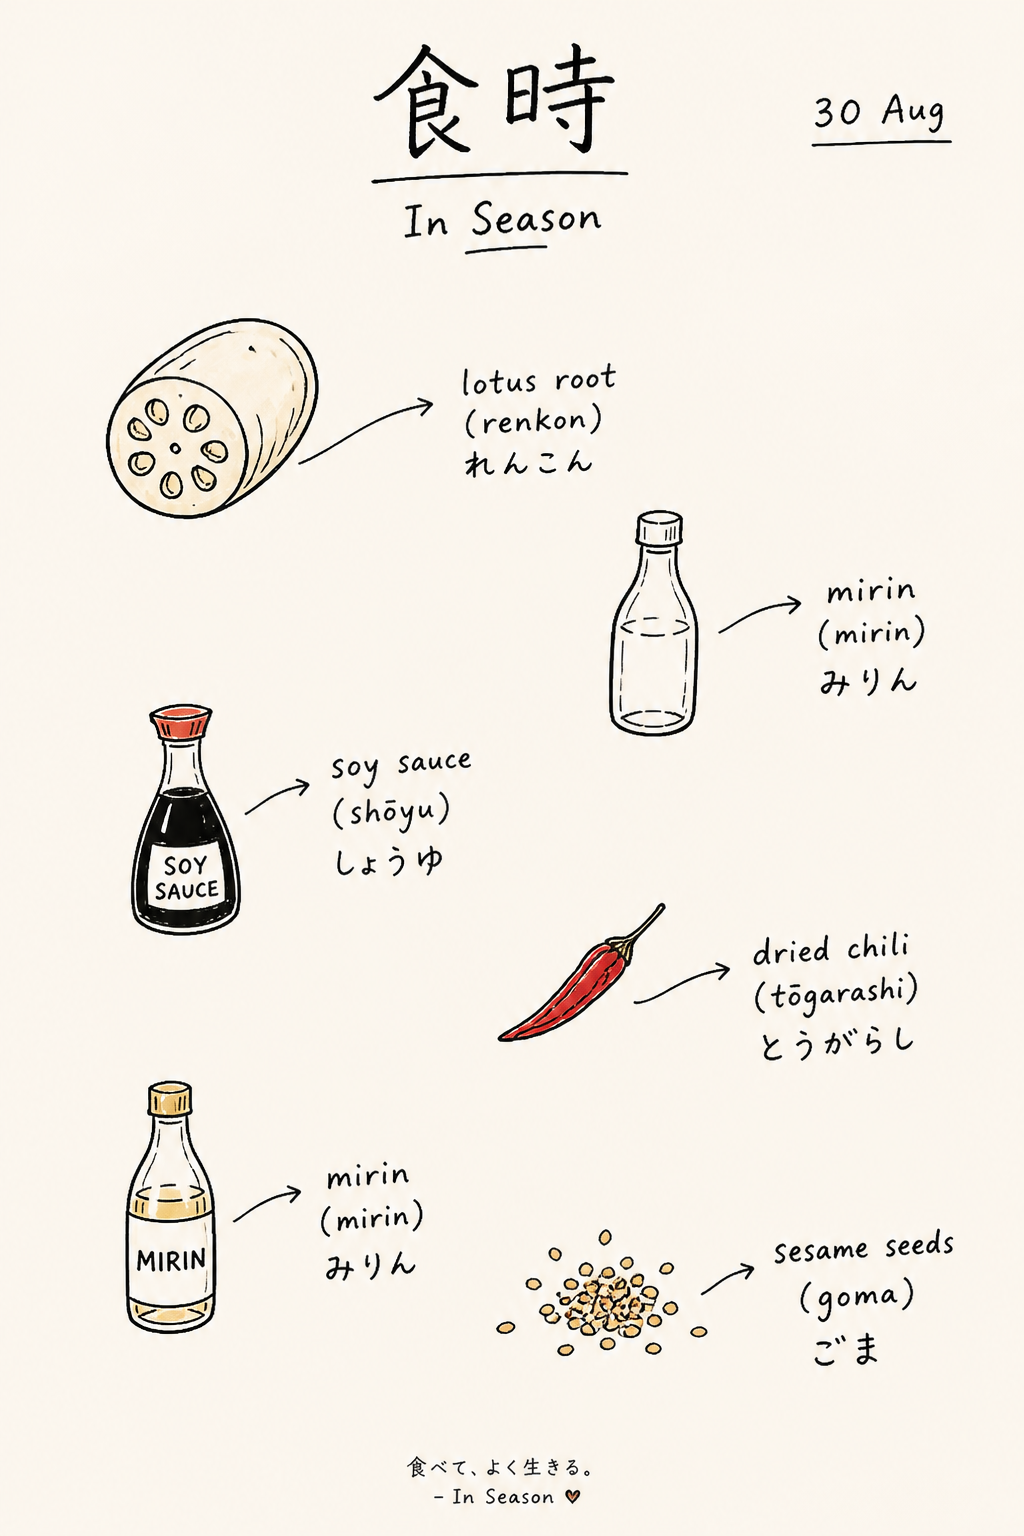 食時
30 Aug
In Season
lotus root
(renkon)
れんこん
mirin
(mirin)
みりん
soy sauce
(shōyu)
しょうゆ
SOY
SAUCE
dried chili
(tōgarashi)
とうがらし
mirin
(mirin)
みりん
MIRIN
sesame seeds
(goma)
ごま
食べて、よく生きる。
- In Season